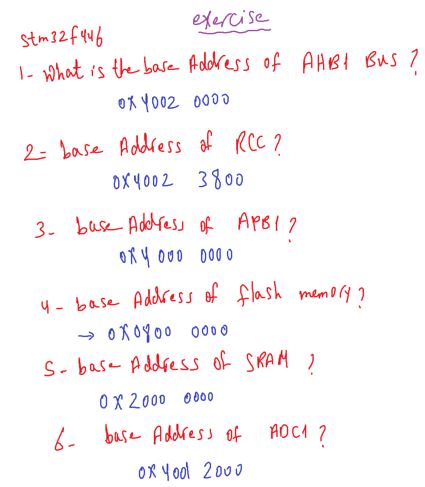 exercise
stm32f446
1- What is the base Address of AHB1 Bus ?
0x4002 0000
2- base Address of RCC ?
0x4002 3800
3- base Address of APB1 ?
0x4000 0000
4- base Address of flash memory ?
→ 0x0800 0000
5- base Address of SRAM ?
0x2000 0000
6- base Address of ADC1 ?
0x4001 2000